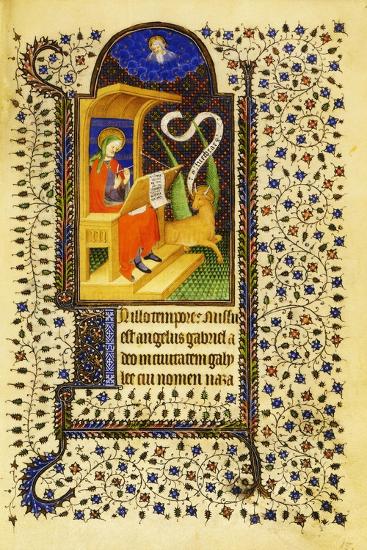 IN illo tempore: Missus
est angelus gabriel a
deo in ciuitatem galy
lee cui nomen naza